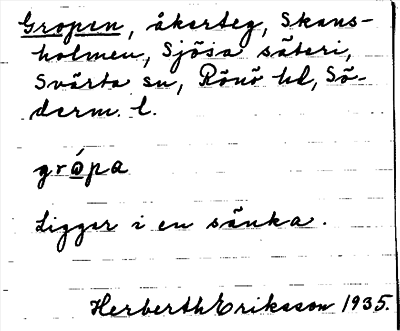 Gropen, åkerteg, Skans-
holmen, Sjösa säteri,
Svärta sn, Rönö hd, Sö-
derm. l.
grópa
Ligger i en sänka.
Herberth Eriksson 1935.